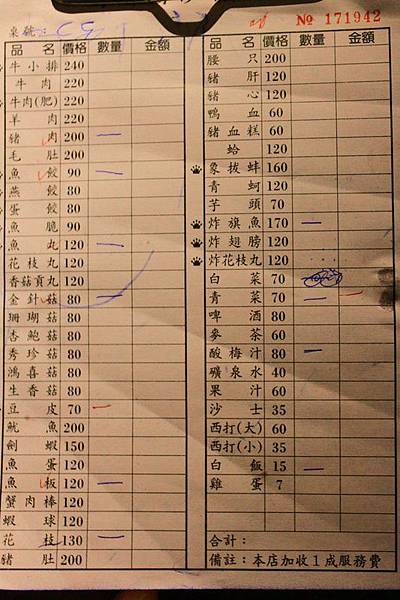 桌號:
№ 171942
品名 價格 數量 金額
牛小排 240
牛肉 220
牛肉(肥) 220
羊肉 220
豬肉 200 一
毛肚 200
魚餃 90 一
燕餃 80
蛋餃 80
魚脆 90
魚丸 120 一
花枝丸 120
香菇貢丸 120
金針菇 80 一
珊瑚菇 80
杏鮑菇 80
秀珍菇 80
鴻喜菇 80
生香菇 80
豆皮 70 一
魷魚 200
劍蝦 150
魚蛋 120
魚板 120 一
蟹肉棒 120
蝦球 120
花枝 130 一
豬肚 200
品名 價格 數量 金額
腰只 200
豬肝 120
豬心 120
鴨血 60
豬血糕 60
蛤 120
象拔蚌 160
青蚵 120
芋頭 70
炸旗魚 170 一
炸翅膀 120
炸花枝丸 120
白菜 70
青菜 70 一 一
啤酒 80
麥茶 60
酸梅汁 80 一
礦泉水 40
果汁 60
沙士 35
西打(大) 60
西打(小) 35
白飯 15 一
雞蛋 7
合計:
備註:本店加收1成服務費